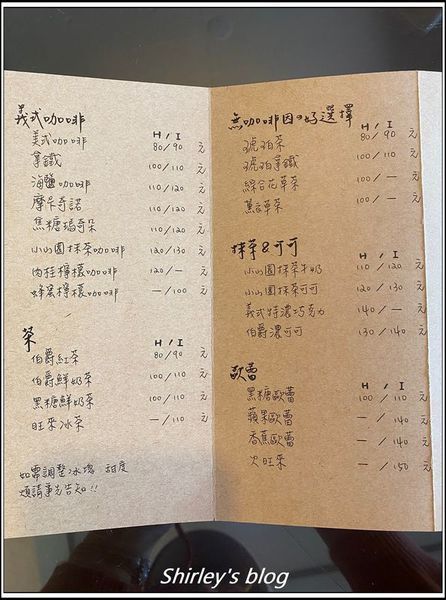 義式咖啡
H / I
美式咖啡 80/90 元
拿鐵 100/110 元
海鹽咖啡 110/120 元
摩卡奇諾 110/120 元
焦糖瑪奇朵 110/120 元
小山園抹茶咖啡 120/130 元
肉桂檸檬咖啡 120/— 元
蜂蜜檸檬咖啡 —/100 元
茶
H / I
伯爵紅茶 80/90 元
伯爵鮮奶茶 100/110 元
黑糖鮮奶茶 100/110 元
旺來冰茶 —/110 元
如需調整冰塊 甜度
煩請事先告知!!
無咖啡因の好選擇
H / I
琥珀茶 80/90 元
琥珀拿鐵 100/110 元
綜合花草茶 100/— 元
薰衣草茶 100/— 元
抹茶&可可
H / I
小山園抹茶牛奶 110/120 元
小山園抹茶可可 120/130 元
義式特濃巧克力 140/— 元
伯爵濃可可 130/140 元
歐蕾
H / I
黑糖歐蕾 100/110 元
蘋果歐蕾 —/140 元
香蕉歐蕾 —/140 元
火旺來 —/150 元
Shirley's blog